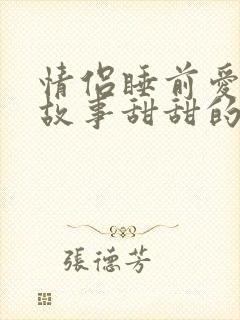 情侣睡前爱
故事甜甜的
張德芳